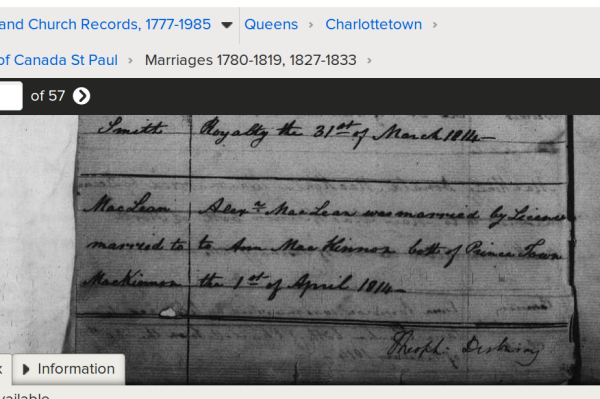 and Church Records, 1777-1985 Queens › Charlottetown ›
of Canada St Paul › Marriages 1780-1819, 1827-1833 ›
of 57
Smith Royalty the 31st of March 1814
MacLean Alexr MacLean was married by License
married to to Ann MacKinnon both of Prince Town
MacKinnon the 1st of April 1814
Theoph: Desbrisay
Information
vailable